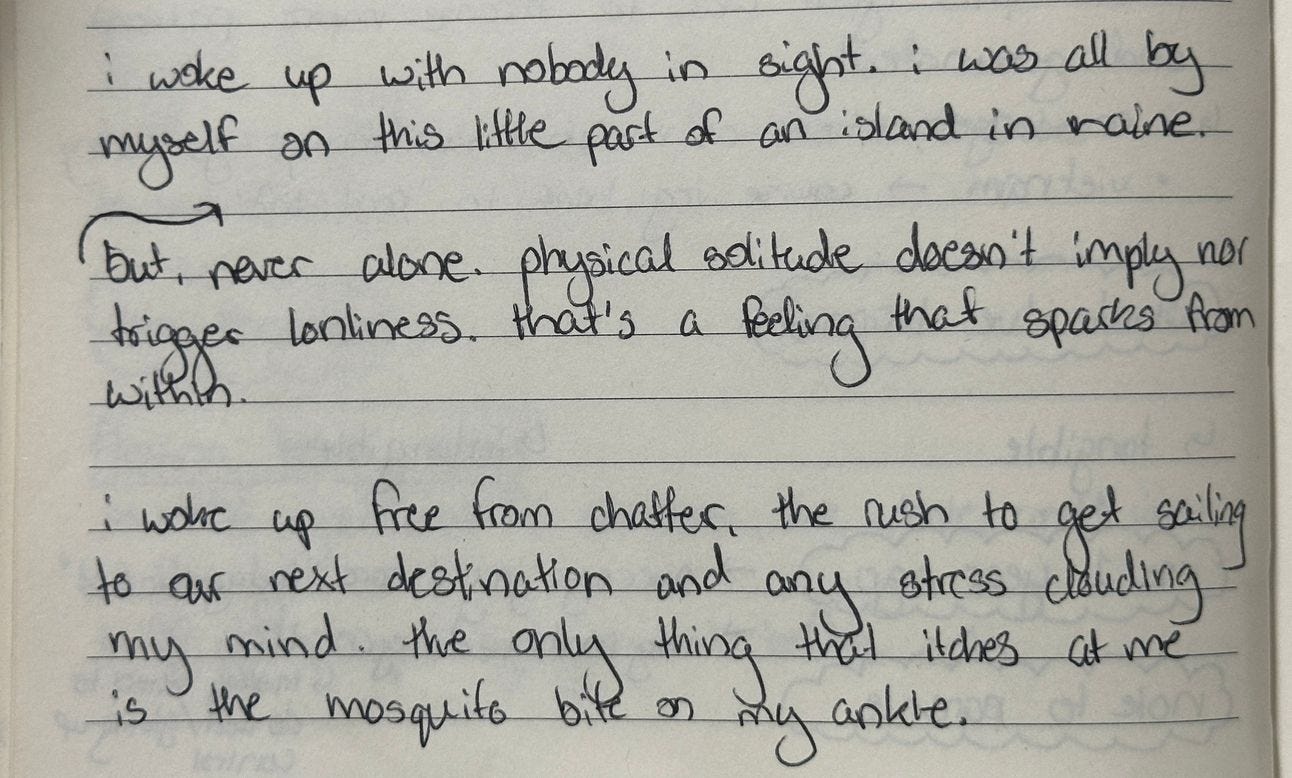 i woke up with nobody in sight. i was all by
myself on this little part of an island in maine.
but, never alone. physical solitude doesn't imply nor
trigger lonliness. that's a feeling that sparks from
within.
i woke up free from chatter, the rush to get sailing
to our next destination and any stress clouding
my mind. the only thing that itches at me
is the mosquito bite on my ankle.